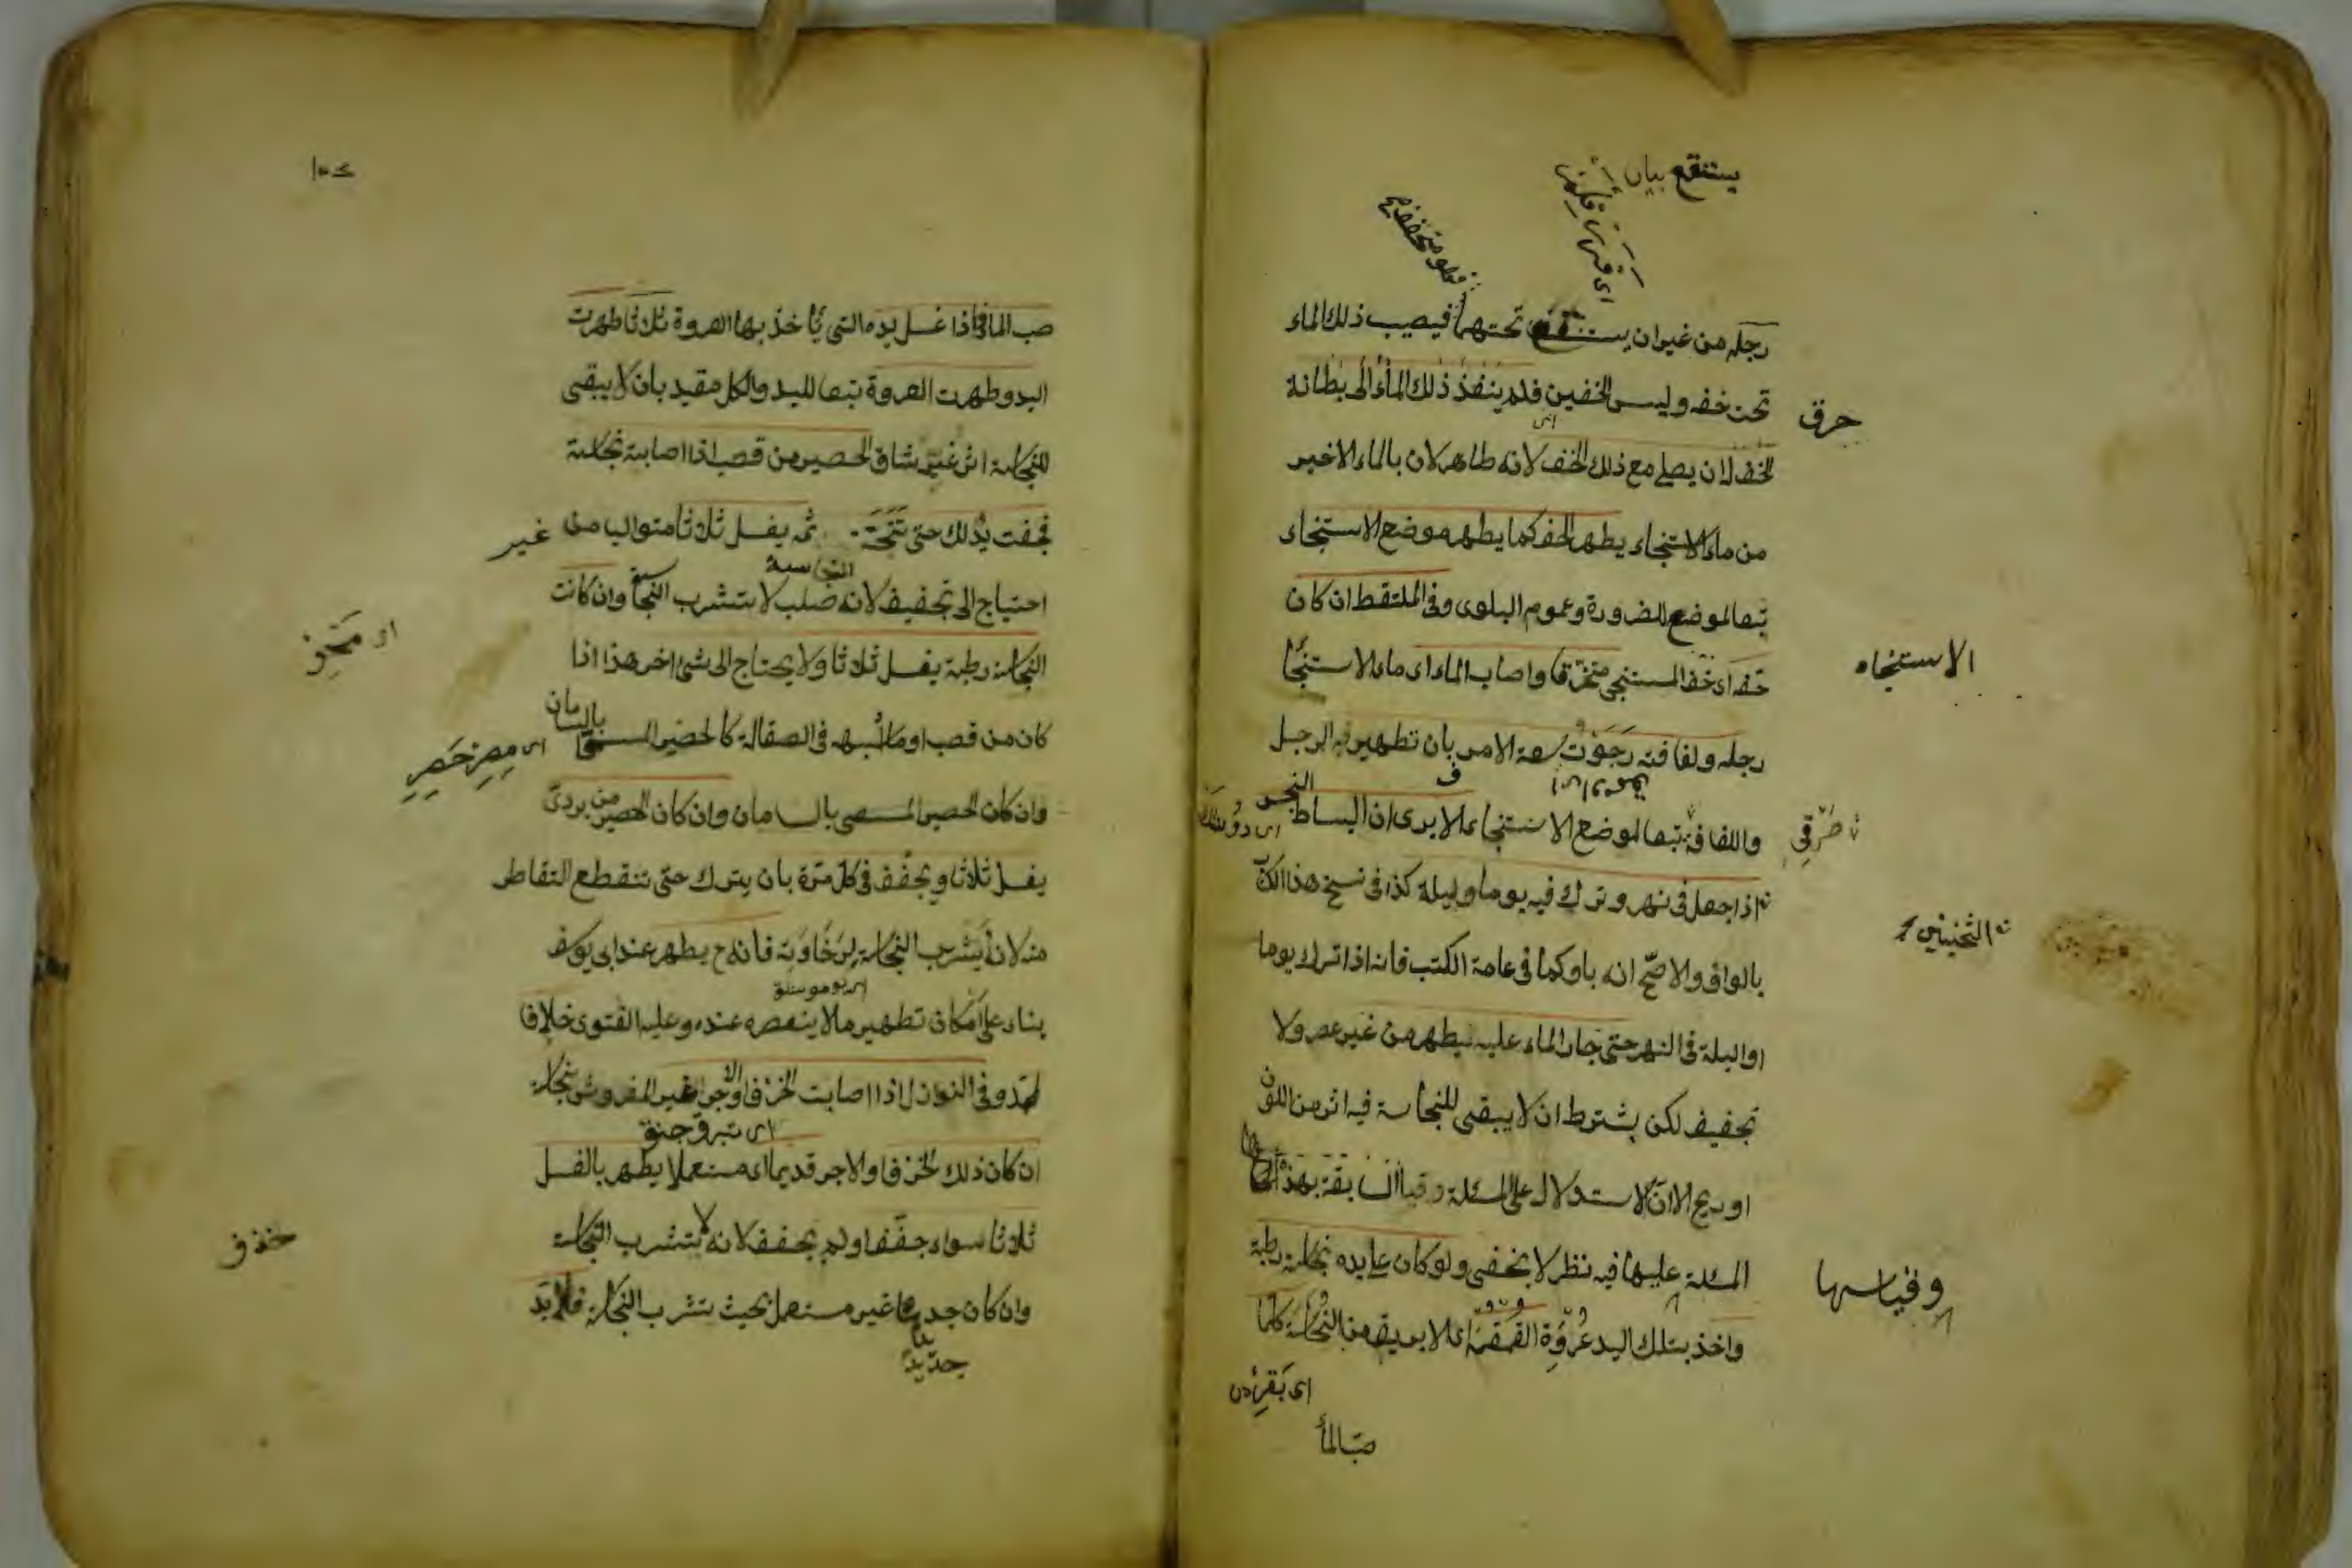 يستنقع بيان
رجله من غير ان يستنقع تحتهما فيصيب ذلك الماء
تحت خفه وليس الخفين فلم ينفذ ذلك الماء الى بطانة
خرق
الخف لان يصلي مع ذلك الخف لانه طاهر لان بالماء الاخير
من ماء الاستنجاء يطهر الخف كما يطهر موضع الاستنجاء
تبعا لموضع للضرورة وعموم البلوى وفي الملتقط ان كان
خفه اى خف المستنجى متخرقا واصاب الماء اى ماء الاستنجا
الاستنجاء
رجله ولفافته رجوت سعة الامر بان تطهير فيه الرجل
واللفافة تبعا لموضع الاستنجاء الا يرى ان البساط النجس
اذا جعل فى نهر وترك فيه يوما وليلة كذا فى نسخ هذا الكتاب
بالواو والاصح انه باو كما فى عامة الكتب فانه اذا ترك يوما
او ليلة فى النهر حتى جار الماء عليه يطهر من غير عصر ولا
تجفيف لكن يشترط ان لا يبقى للنجاسة فيه اثر من اللون
او ريح الا ان الاستدلال على المسئلة وقياس السابقة بهذه
المسئلة عليها فيه نظر لا يخفى ولو كان على يده نجاسة رطبة
وقياسها
واخذ بتلك اليد عروة القمقمة اى الابريق من النجاسة كلما
صب الما
صب الما فاذا غسل يده التى ياخذ بها العروة ثلاثا طهرت
اليد وطهرت العروة تبعا لليد والكل مقيد بان لا يبقى
للنجاسة اثر غير شاق الحصير من قصب اذا اصابته نجاسة
فجفت يدلك حتى تتحتّ ثم يغسل ثلاثا متواليا من غير
احتياج الى تجفيف لانه صلب لا يتشرب النجاسة وان كانت
النجاسة رطبة يغسل ثلاثا ولا يحتاج الى شئ اخر هذا اذا
كان من قصب او ما اشبهه فى الصقالة كالحصير بالسامان
اى مصر حصير
وان كان الحصير المسمى بالسامان وان كان الحصير من بردى
يغسل ثلاثا ويجفف فى كل مرة بان يترك حتى تنقطع التقاطر
منه لانه يتشرب النجاسة لرخاوته فانه ح يطهر عند ابى يوسف
بناء على امكان تطهير ما لا ينعصر عنده وعليه الفتوى خلافا
لمحمد وفى النوازل اذا اصابت الخزف او الاجر الغير المفروش نجاسة
ان كان ذلك الخزف او الاجر قديما اى مستعملا يطهر بالغسل
ثلاثا سواء جففا او لم يجفف لانه لا يتشرب النجاسة
وان كان جديدا غير مستعمل بحيث يتشرب النجاسة فلا بد
جديدا